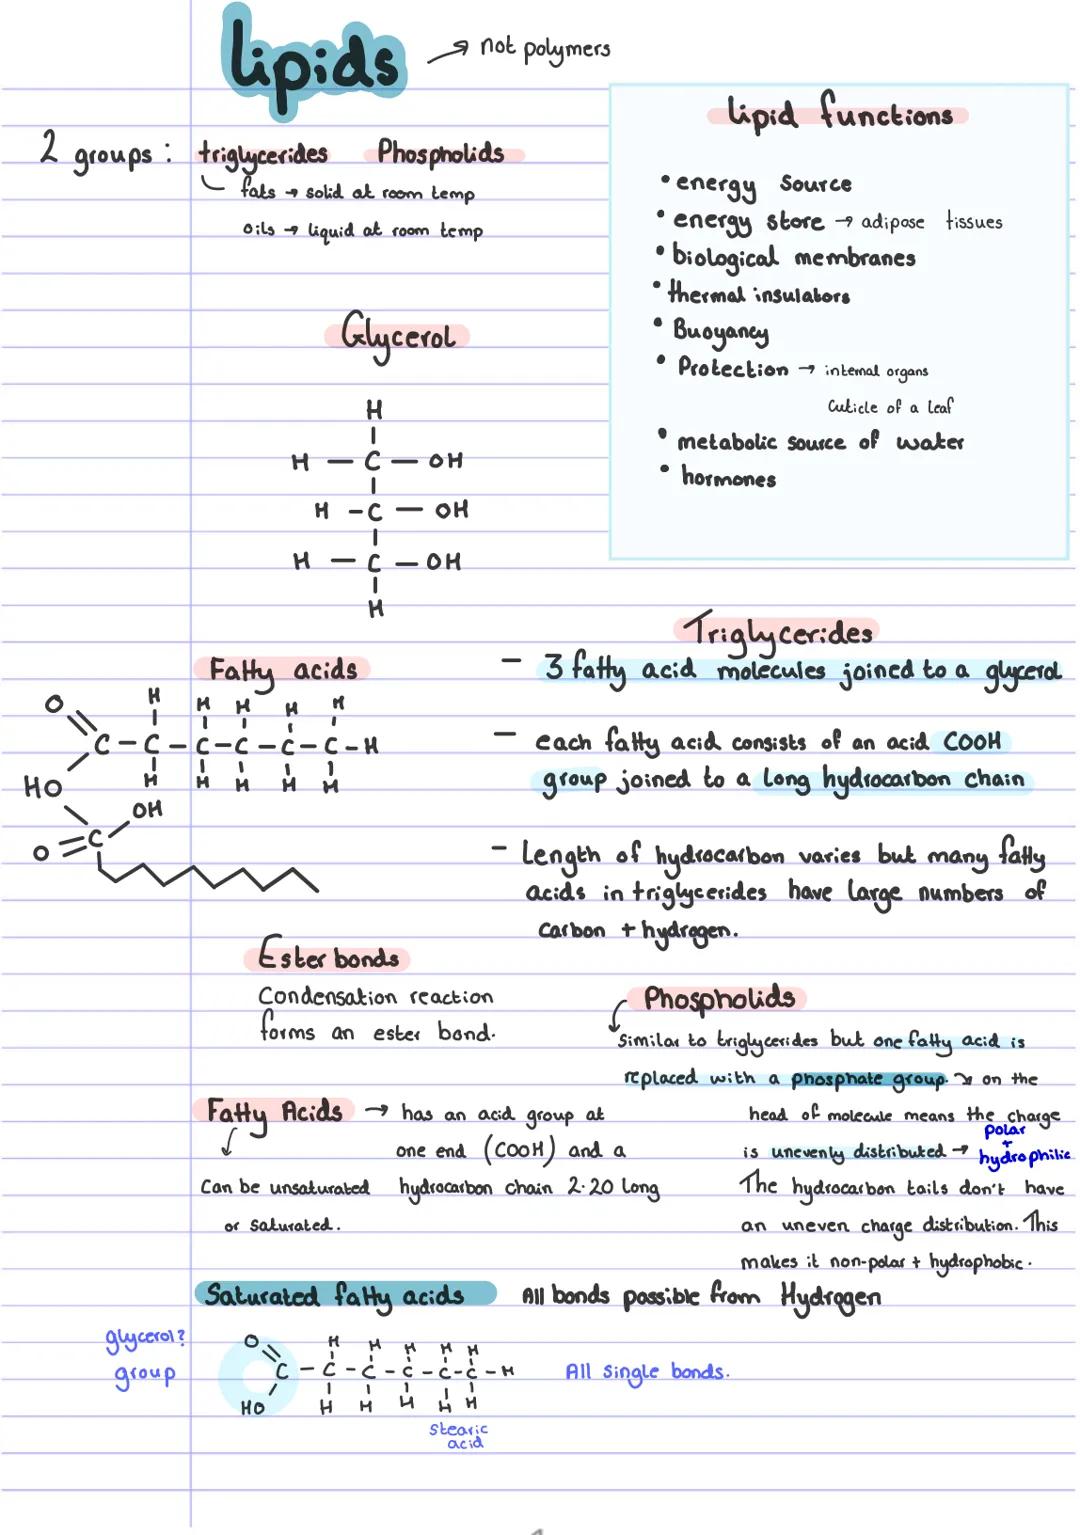 lipids → not polymers
2 groups: triglycerides Phospholids
fats → solid at room temp
oils → liquid at room temp
Lipid functions
• energy source
• energy store → adipose tissues
• biological membranes
• thermal insulators
• Buoyancy
• Protection → internal organs
Cuticle of a leaf
• metabolic source of water
• hormones
Glycerol
H
H — C — OH
H - C — OH
H — C — OH
H
Fatty acids
H H H H H
O
C - C - C - C - C - C - H
HO
H H H H H
OH
O = C
Triglycerides
- 3 fatty acid molecules joined to a glycerol
- each fatty acid consists of an acid COOH
group joined to a long hydrocarbon chain
- Length of hydrocarbon varies but many fatty
acids in triglycerides have large numbers of
carbon + hydrogen.
Ester bonds
Condensation reaction
forms an ester bond.
Phospholids
Similar to triglycerides but one fatty acid is
replaced with a phosphate group. → on the
head of molecule means the charge
is unevenly distributed → polar
+
hydrophilic
The hydrocarbon tails don't have
an uneven charge distribution. This
makes it non-polar + hydrophobic.
Fatty Acids → has an acid group at
one end (COOH) and a
hydrocarbon chain 2-20 long
Can be unsaturated
or saturated.
Saturated fatty acids All bonds possible from Hydrogen
glycerol?
group
O H H H H H
C - C - C - C - C - C - H
HO H H H H H
All single bonds.
stearic
acid